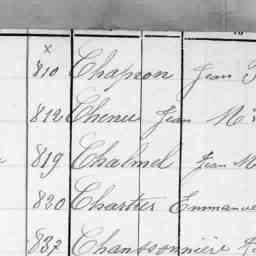 x
810 Chapron Jean
812 Chenu Jean M
819 Chalmel Jean M
820 Chartier Emmanue
837 Chanssonnière